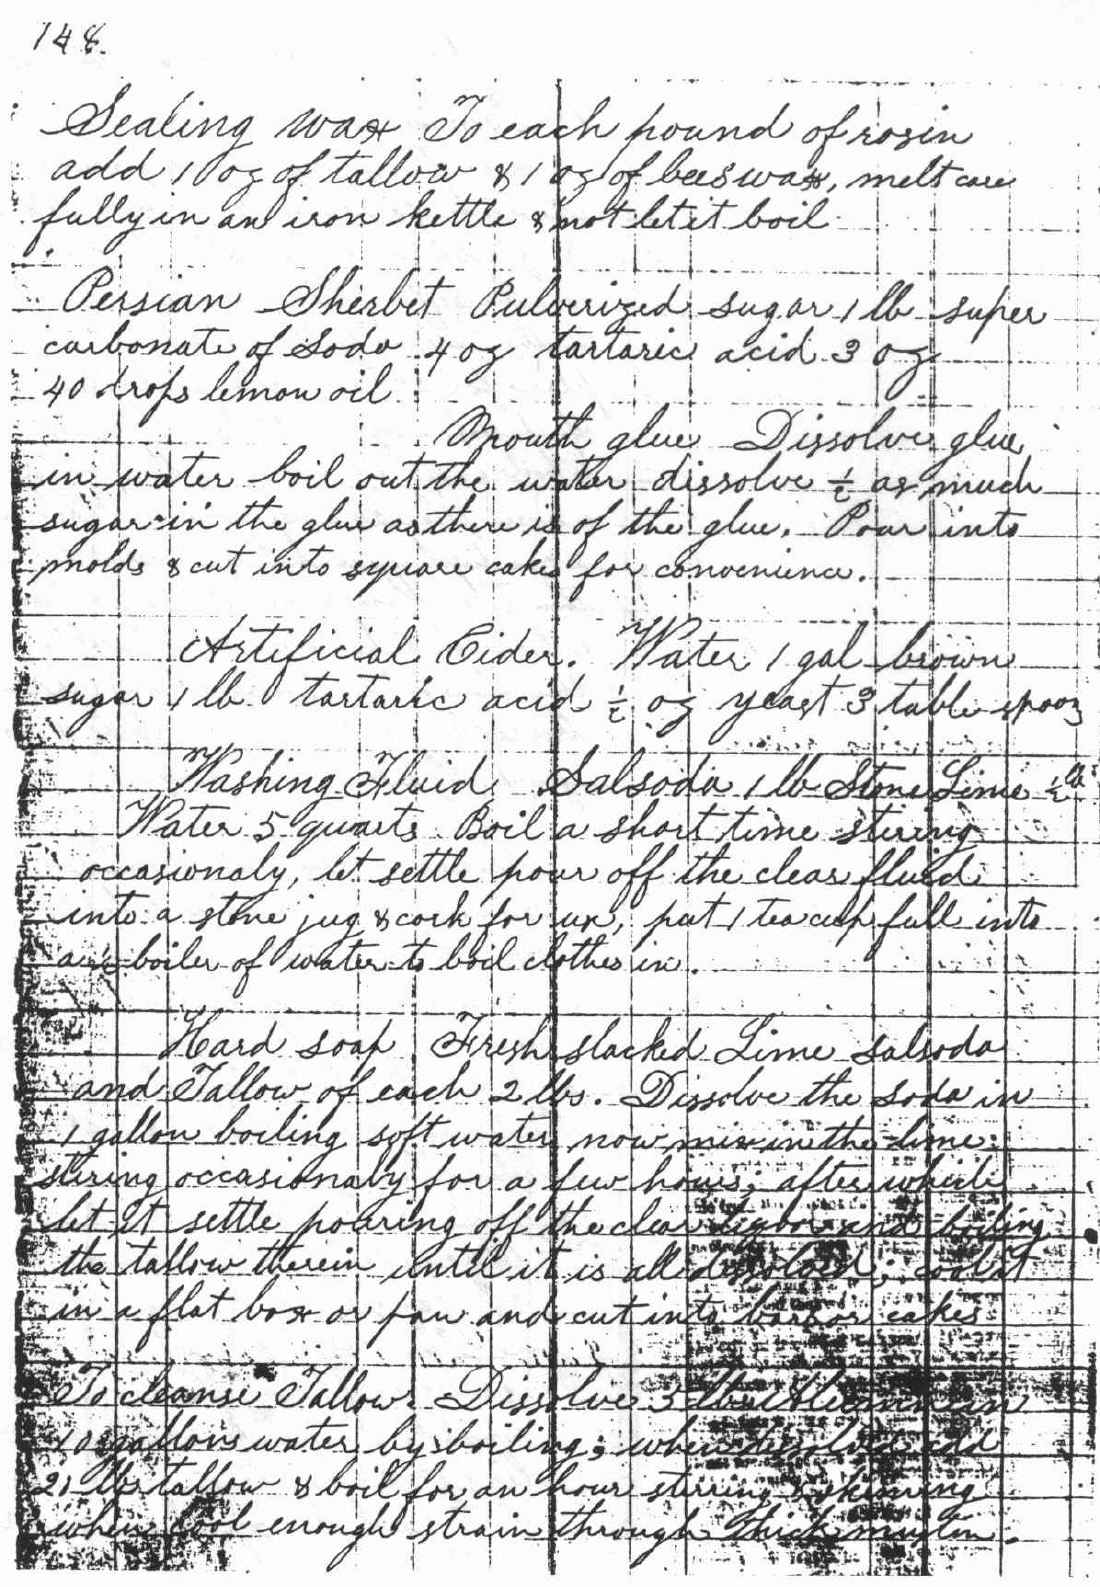 148.
Sealing wax To each pound of rosin
add 1 oz of tallow & 1 oz of beeswax, melt care
fully in an iron kettle & not let it boil
Persian Sherbet Pulverized sugar 1 lb super
carbonate of soda 4 oz tartaric acid 3 oz
40 drops lemon oil
Mouth glue Dissolve glue
in water boil out the water dissolve ½ as much
sugar in the glue as there is of the glue. Pour into
molds & cut into square cakes for convenience.
Artificial Cider. Water 1 gal brown
sugar 1 lb tartaric acid ½ oz yeast 3 table spoon
Washing Fluid Salsoda 1 lb Stone Lime ½ lb
Water 5 quarts Boil a short time stiring
occasionaly, let settle pour off the clear fluid
into a stone jug & cork for use, put 1 tea cup full into
a boiler of water to boil clothes in.
Hard soap Fresh slacked Lime salsoda
and Tallow of each 2 lbs. Dissolve the soda in
1 gallon boiling soft water now mix in the lime
stiring occasionaly for a few hours; after which
let it settle pouring off the clear liquor and boiling
the tallow therein until it is all dissolved; cool it
in a flat box or pan and cut into bars or cakes
To cleanse Tallow. Dissolve 5 lbs alum in
10 gallons water by boiling; when dissolved add
20 lb tallow & boil for an hour stirring & skiming
when cool enough strain through thick muslin.